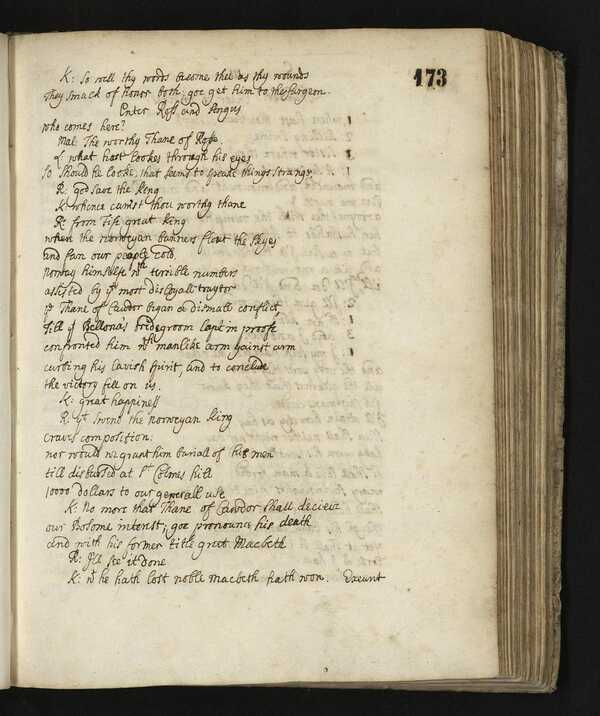 173
K: So well thy words become thee as thy wounds
They smack of honor both; goe get him to the surgeon.
Enter Ross and Angus
who comes here?
Mal: The worthy Thane of Rosse.
L: what hast lookes through his eyes
So should he looke, that seems to speake things strange.
R: god save the king
K: whence camst thou worthy thane
R: from Fife great king
when the norweyan banners flout the skyes
and fan our people cold.
norway himselfe wth terrible numbers
assisted by yt most disloyall traytor
ye Thane of Cawdor began a dismall conflict,
Till yt Bellona's bridegroom lapt in proofe
confronted him wth manlike arm gainst arm
curbing his lavish spirit, and to conclude
the victory fell on us.
K: great happiness
R: yt Sweno the norweyan king
Craves composition.
nor would we grant him buriall of his men
till disbursed at St Colmes hill
10000 dollars to our generall use
K: No more that Thane of Cawdor shall decieve
our Bosome interest; goe pronounce his death
and with his former title greet Macbeth
R: I'll see it done
K: wt he hath lost noble macbeth hath won. Exeunt